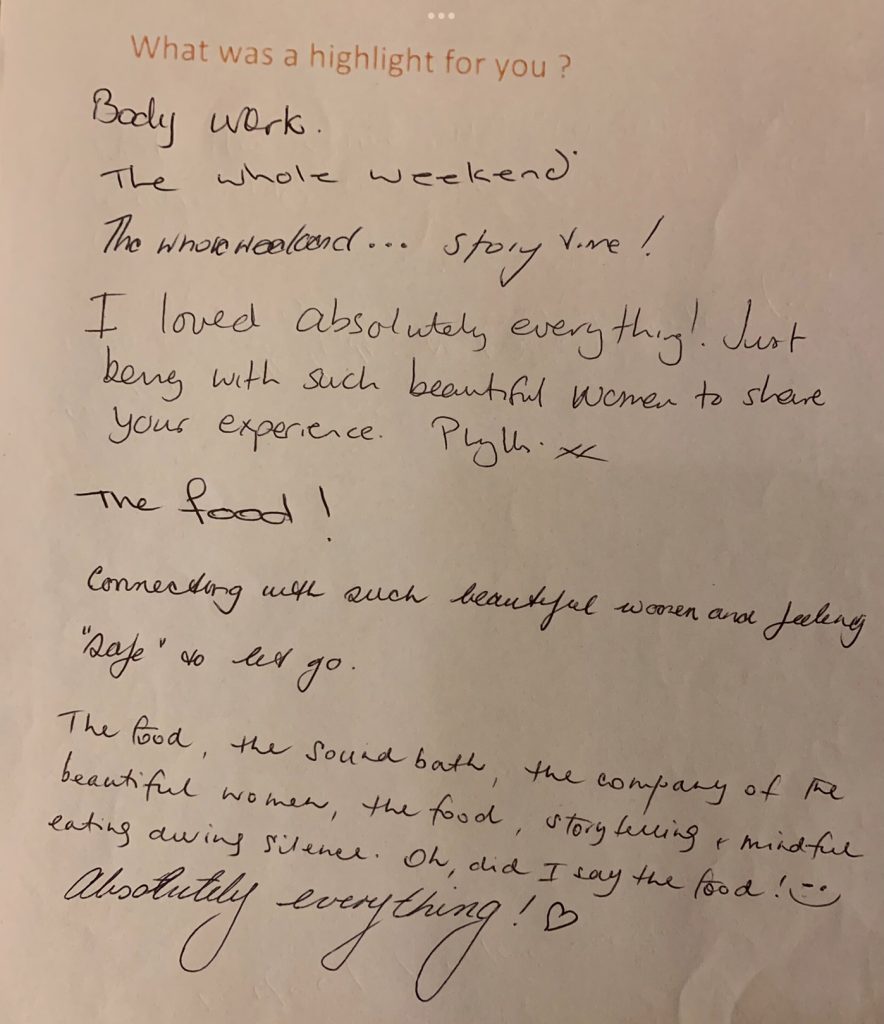 What was a highlight for you ?
Body work.
The whole weekend
The whole weekend... story time !
I loved absolutely everything! Just
being with such beautiful women to share
your experience. Phyllis. xx
The food !
Connecting with such beautiful women and feeling
"safe" to let go.
The food, the sound bath, the company of the
beautiful women, the food, storytelling + mindful
eating during silence. Oh, did I say the food !
Absolutely everything ! ♡